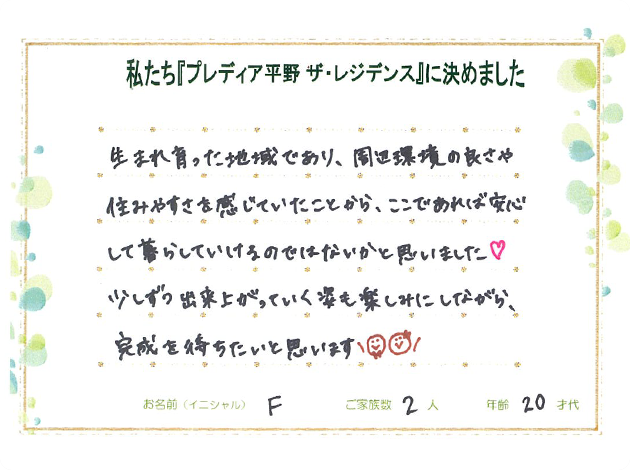 私たち『プレディア平野 ザ・レジデンス』に決めました
生まれ育った地域であり、周辺環境の良さや
住みやすさを感じていたことから、ここであれば安心
して暮らしていけるのではないかと思いました♡
少しずつ出来上がっていく姿も楽しみにしながら、
完成を待ちたいと思います
お名前（イニシャル） F ご家族数 2 人 年齢 20 才代